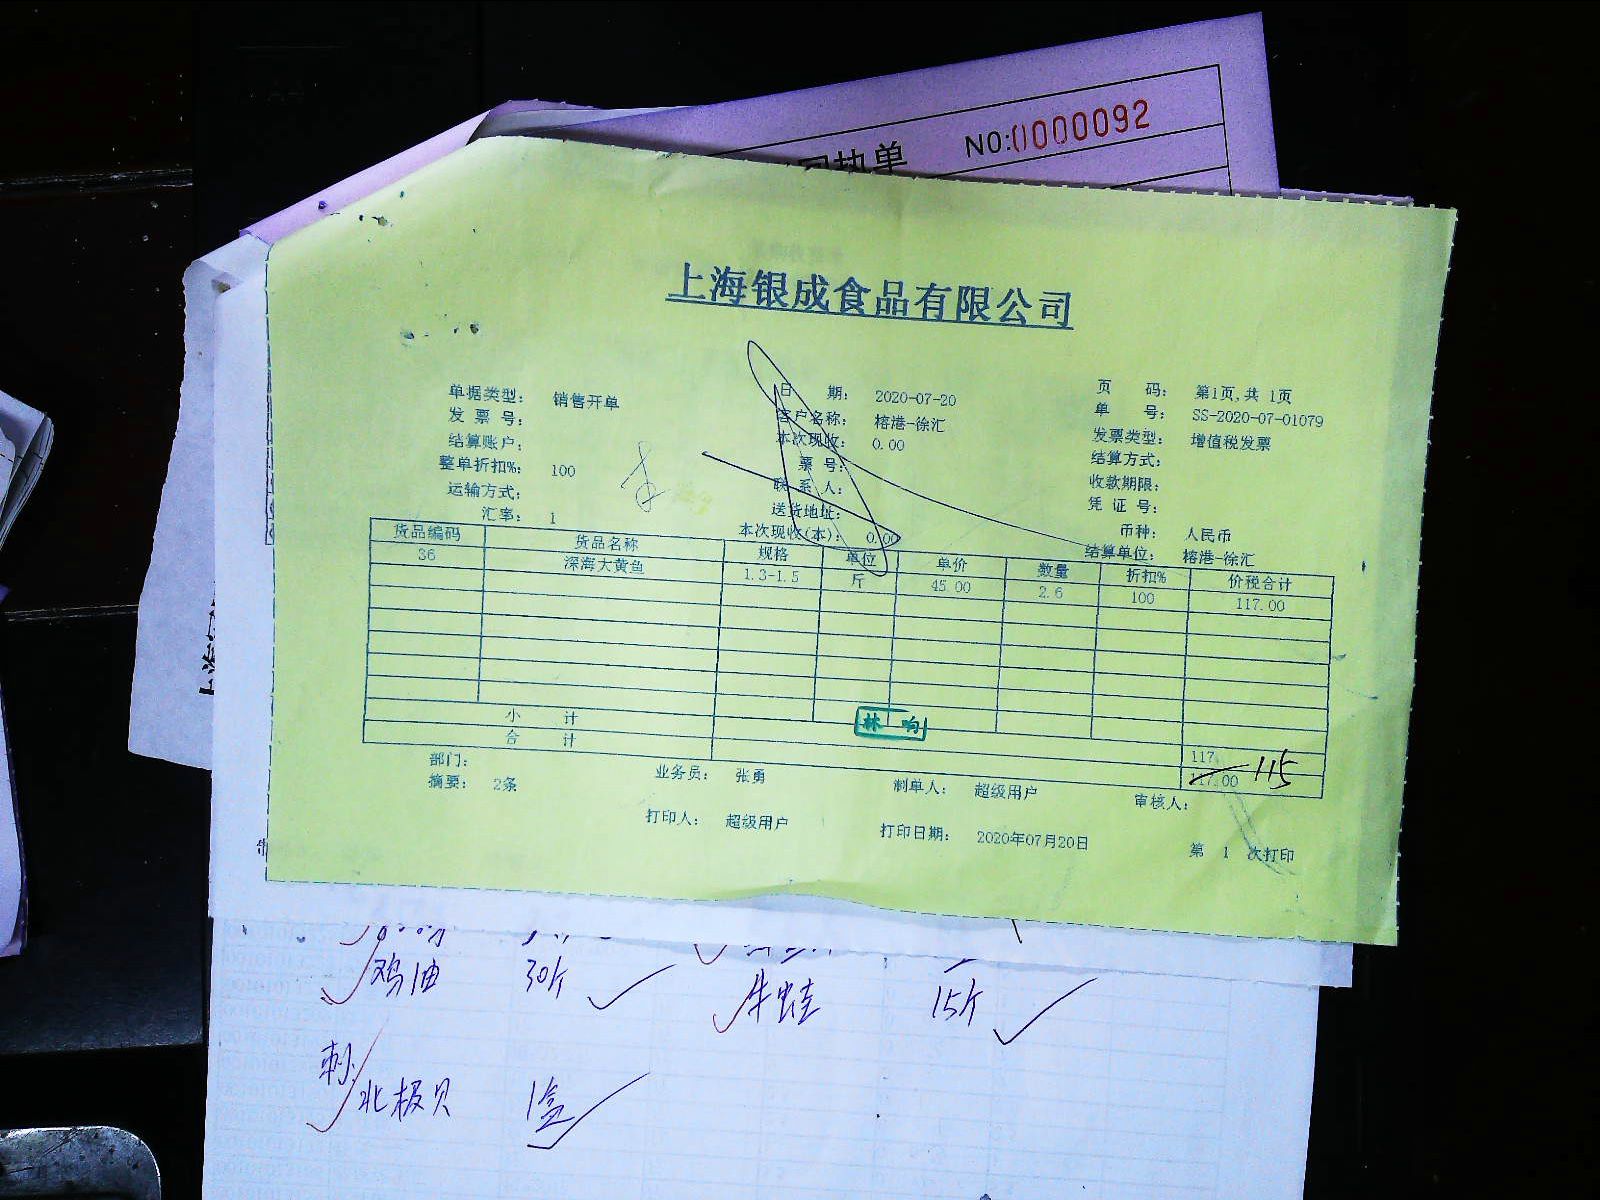 回执单 NO:0000092
上海银成食品有限公司
单据类型： 销售开单 日 期： 2020-07-20 页 码： 第1页,共 1页
发 票 号： 客户名称： 榕港-徐汇 单 号： SS-2020-07-01079
结算账户： 本次现收： 0.00 发票类型： 增值税发票
整单折扣%： 100 票 号： 结算方式：
运输方式： 联 系 人： 收款期限：
送货地址： 凭 证 号：
汇率： 1 本次现收(本)： 0.00 币种： 人民币
结算单位： 榕港-徐汇
货品编码 货品名称 规格 单位 单价 数量 折扣% 价税合计
36 深海大黄鱼 1.3-1.5 斤 45.00 2.6 100 117.00
林 响
小 计 117.
合 计 117.00 115
部门： 业务员： 张勇 制单人： 超级用户 审核人：
摘要： 2条
打印人： 超级用户 打印日期： 2020年07月20日 第 1 次打印
鸡油 30斤 牛蛙 15斤
刺
北极贝 1盒